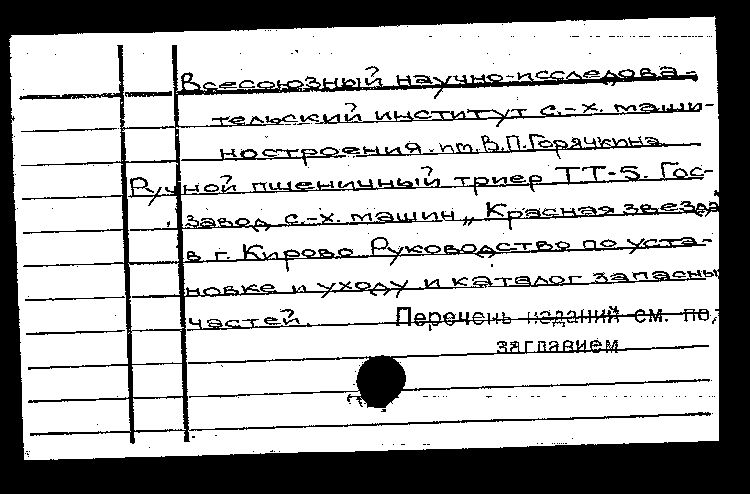 Всесоюзный научно-исследова-
тельский институт с.-х. маши-
ностроения. им. В.П.Горячкина.
Ручной пшеничный триер ТТ-5. Гос-
завод с.-х. машин „Красная звезда
в г. Кирово Руководство по уста-
новке и уходу и каталог запасны
частей. Перечень изданий см. по
заглавием